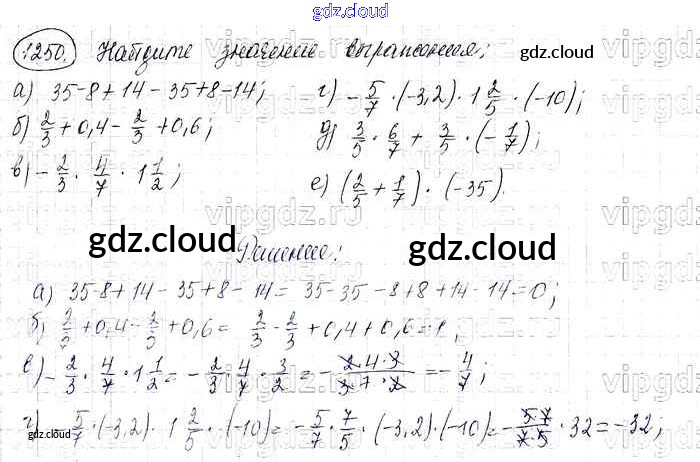 gdz.cloud
1250. Найдите значение выражения: gdz.cloud
а) 35-8+14-35+8-14; г) -5/7 · (-3,2) · 1 2/5 · (-10);
б) 2/3 + 0,4 - 2/3 + 0,6; д) 3/5 · 6/7 + 3/5 · (-1/7);
в) -2/3 · 4/7 · 1 1/2; е) (2/5 + 1/7) · (-35).
gdz.cloud Решение: gdz.cloud
а) 35-8+14-35+8-14 = 35-35-8+8+14-14=0;
б) 2/3 + 0,4 - 2/3 + 0,6 = 2/3 - 2/3 + 0,4 + 0,6 = 1;
в) -2/3 · 4/7 · 1 1/2 = -2/3 · 4/7 · 3/2 = -2·4·3/3·7·2 = -4/7;
г) -5/7 · (-3,2) · 1 2/5 · (-10) = -5/7 · 7/5 · (-3,2) · (-10) = -5·7/7·5 · 32 = -32;
gdz.cloud
vipgdz.ru